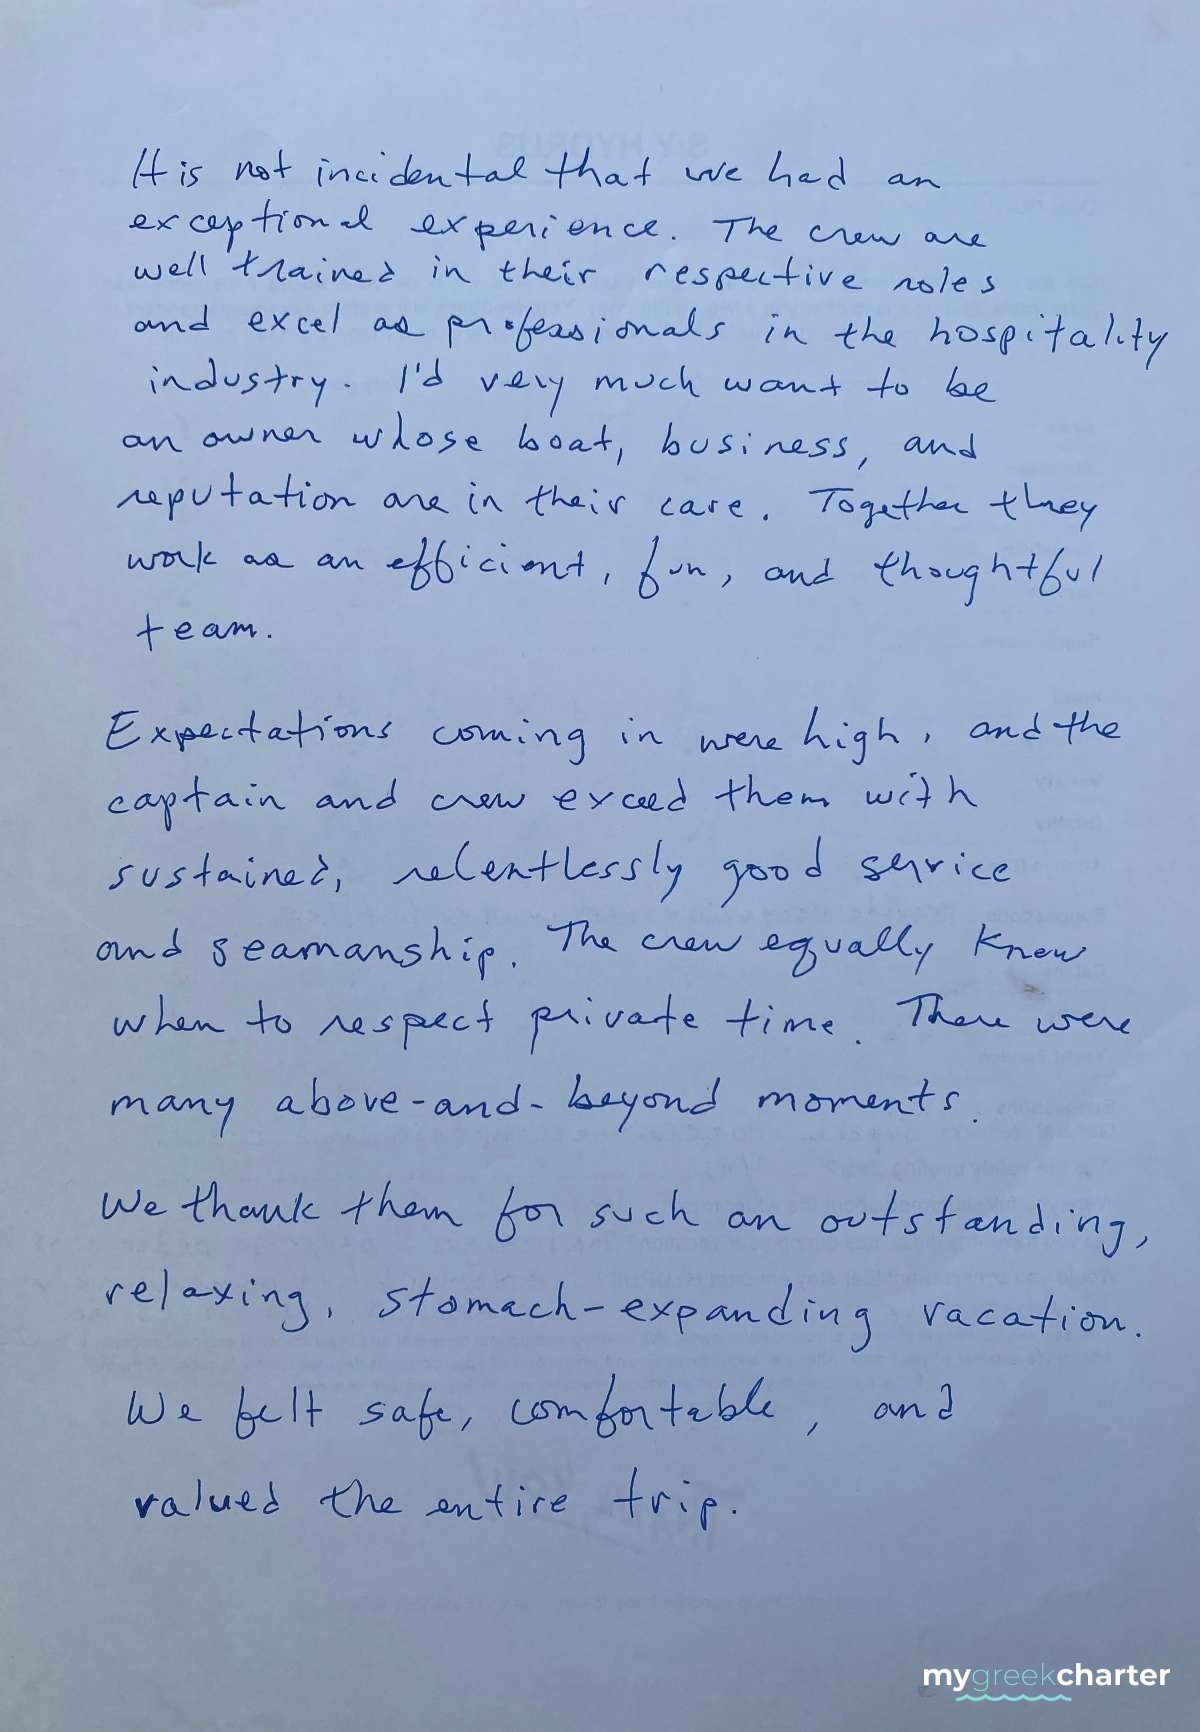 It is not incidental that we had an
exceptional experience. The crew are
well trained in their respective roles
and excel as professionals in the hospitality
industry. I'd very much want to be
an owner whose boat, business, and
reputation are in their care. Together they
work as an efficient, fun, and thoughtful
team.
Expectations coming in were high, and the
captain and crew exceed them with
sustained, relentlessly good service
and seamanship. The crew equally knew
when to respect private time. There were
many above-and-beyond moments.
We thank them for such an outstanding,
relaxing, stomach-expanding vacation.
We felt safe, comfortable, and
valued the entire trip.
mygreekcharter